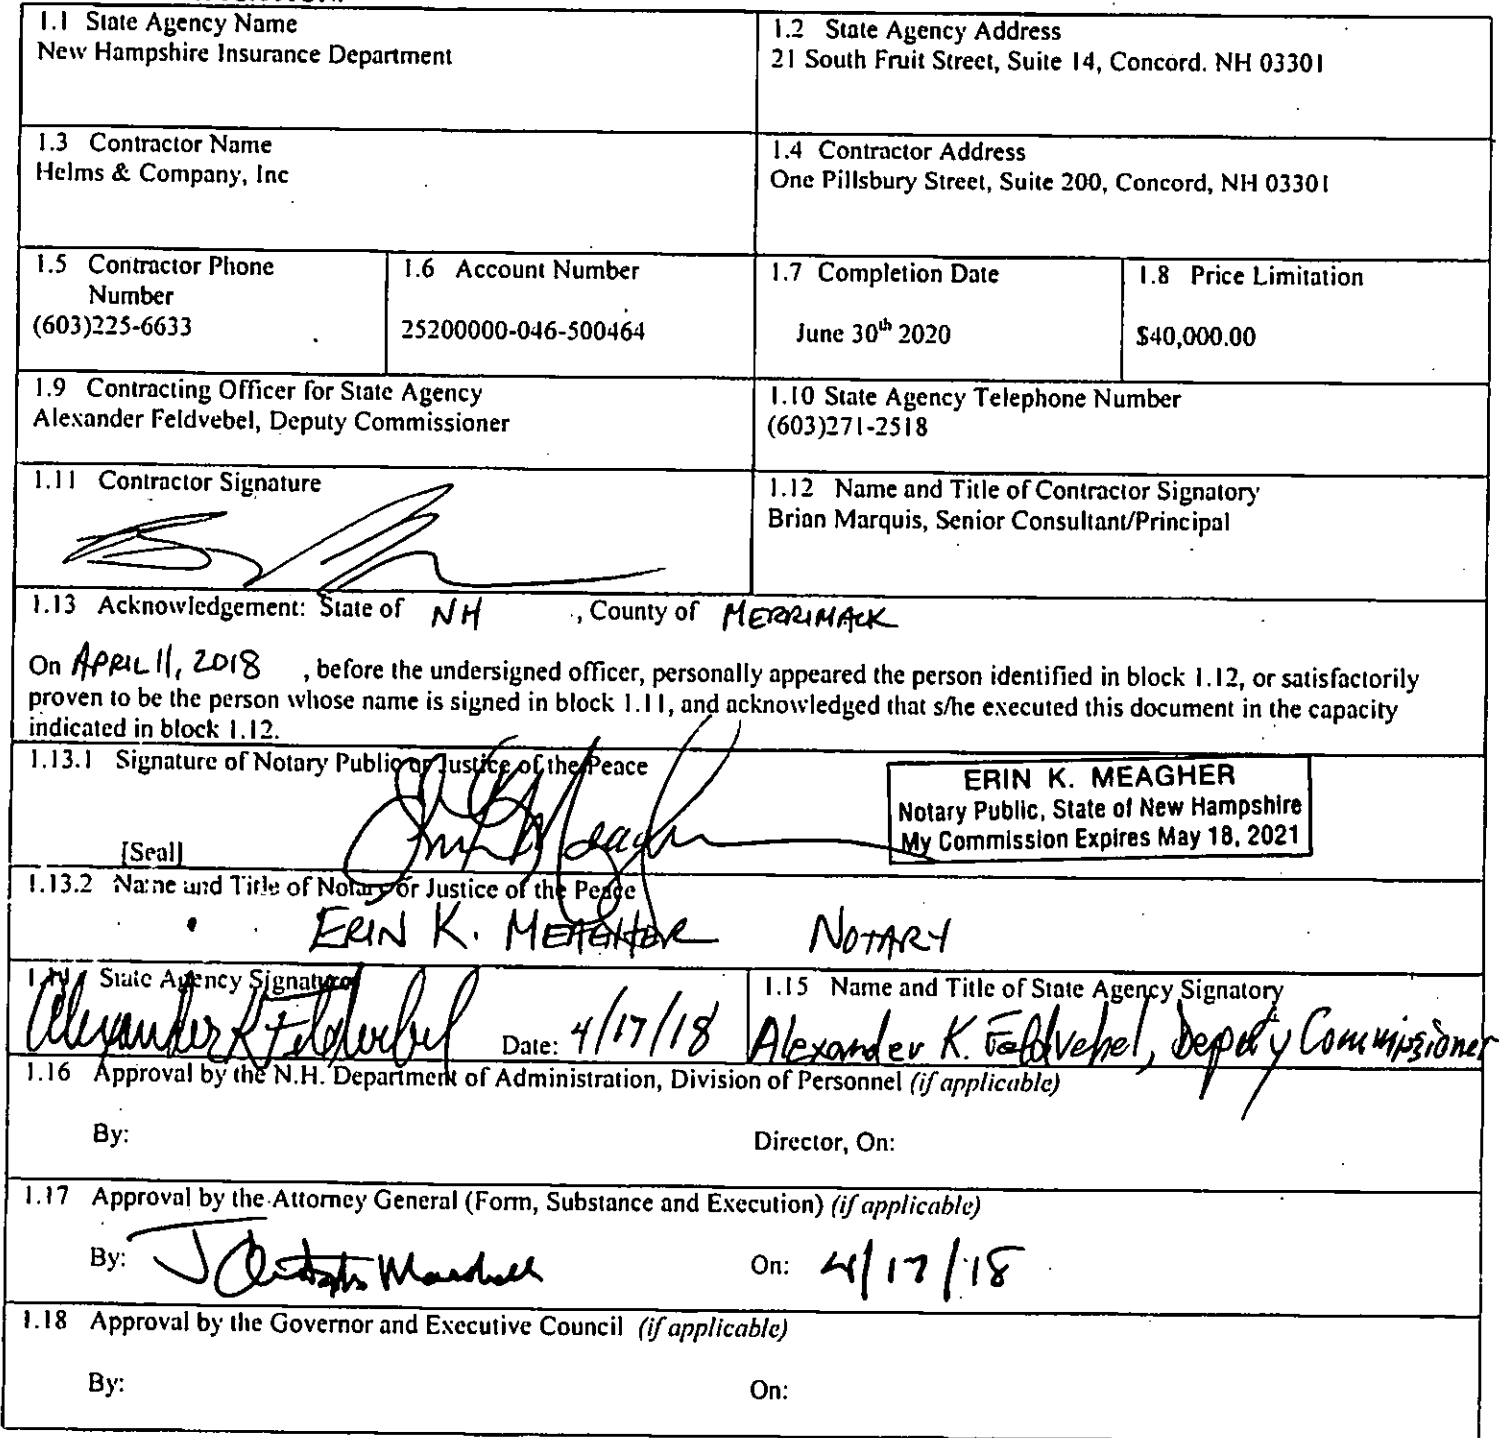 1.1 State Agency Name
New Hampshire Insurance Department
1.2 State Agency Address
21 South Fruit Street, Suite 14, Concord. NH 03301
1.3 Contractor Name
Helms & Company, Inc
1.4 Contractor Address
One Pillsbury Street, Suite 200, Concord, NH 03301
1.5 Contractor Phone
Number
(603)225-6633
1.6 Account Number
25200000-046-500464
1.7 Completion Date
June 30th 2020
1.8 Price Limitation
$40,000.00
1.9 Contracting Officer for State Agency
Alexander Feldvebel, Deputy Commissioner
1.10 State Agency Telephone Number
(603)271-2518
1.11 Contractor Signature
1.12 Name and Title of Contractor Signatory
Brian Marquis, Senior Consultant/Principal
1.13 Acknowledgement: State of NH , County of MERRIMACK
On APRIL 11, 2018 , before the undersigned officer, personally appeared the person identified in block 1.12, or satisfactorily
proven to be the person whose name is signed in block 1.11, and acknowledged that s/he executed this document in the capacity
indicated in block 1.12.
1.13.1 Signature of Notary Public or Justice of the Peace
[Seal]
ERIN K. MEAGHER
Notary Public, State of New Hampshire
My Commission Expires May 18, 2021
1.13.2 Name and Title of Notary or Justice of the Peace
ERIN K. MEAGHER NOTARY
1.14 State Agency Signature
Alexander K Feldvebel Date: 4/17/18
1.15 Name and Title of State Agency Signatory
Alexander K. Feldvebel, Deputy Commissioner
1.16 Approval by the N.H. Department of Administration, Division of Personnel (if applicable)
By: Director, On:
1.17 Approval by the Attorney General (Form, Substance and Execution) (if applicable)
By: J Marshall On: 4/17/18
1.18 Approval by the Governor and Executive Council (if applicable)
By: On: